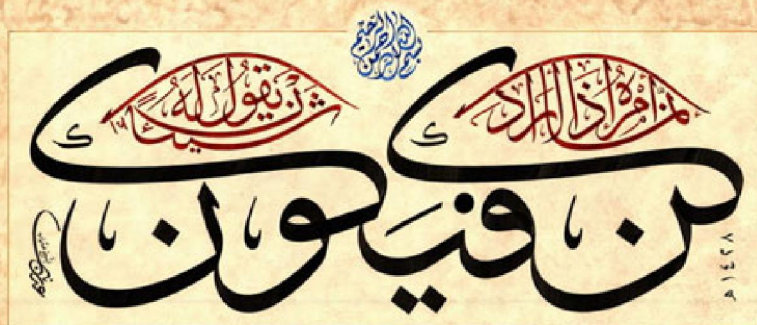 بسم الله الرحمن الرحيم
انما امره اذا اراد شيئاً ان يقول له
كن فيكون
١٤٢٨ھ